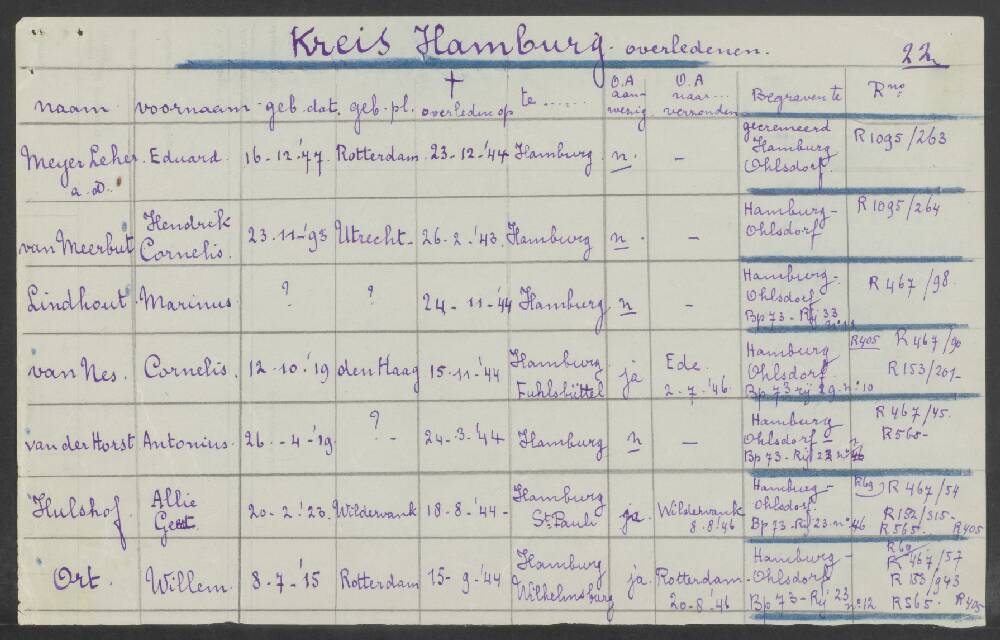 Kreis Hamburg. overledenen.
22
naam voornaam - geb. dat. geb. pl. † overleden op te ...... O.A aan- wezig O.A naar... verzonden Begraven te Rno:
Meyer Leher a.D. Eduard. 16-12-'77. Rotterdam. 23-12-'44 Hamburg. n. - gecremeerd Hamburg Ohlsdorf. R1095/263
van Meerbut Hendrik Cornelis. 23.11-'93 Utrecht- 26.2.'43. Hamburg n. - Hamburg- Ohlsdorf R1095/264
Lindhout Marinus. ? ? 24-11-'44 Hamburg n - Hamburg- Ohlsdorf Bp 73 - Rij 33 no 11 R467/98.
van Nes. Cornelis. 12.10.'19 den Haag 15-11-'44 Hamburg Fuhlsbüttel ja Ede. 2.7.'46. Hamburg Ohlsdorf Bp 73 rij 29. no 10 R405 R467/90 R153/201-
van der Horst Antonius. 26.-4-'19. ?- 24-3.'44 Hamburg n - Hamburg Ohlsdorf Bp 73 - Rij R467/45. R565-
Hulshof. Allie 20-2.'23. Wildervank 18-8-'44- Hamburg St. Pauli ja. Wildervank 8.8.'46 Hamburg- Ohlsdorf. Bp 73-Rij 23. no 46 R69 R467/54 R152/315- R565. R405
Ort. Willem. 8-7-'15 Rotterdam 15-9-'44 Hamburg Wilhelmsburg ja. Rotterdam- 20-8-'46 Hamburg- Ohlsdorf Bp 73-Rij 23 no 12 R69 R467/57 R153/943 R565. R405